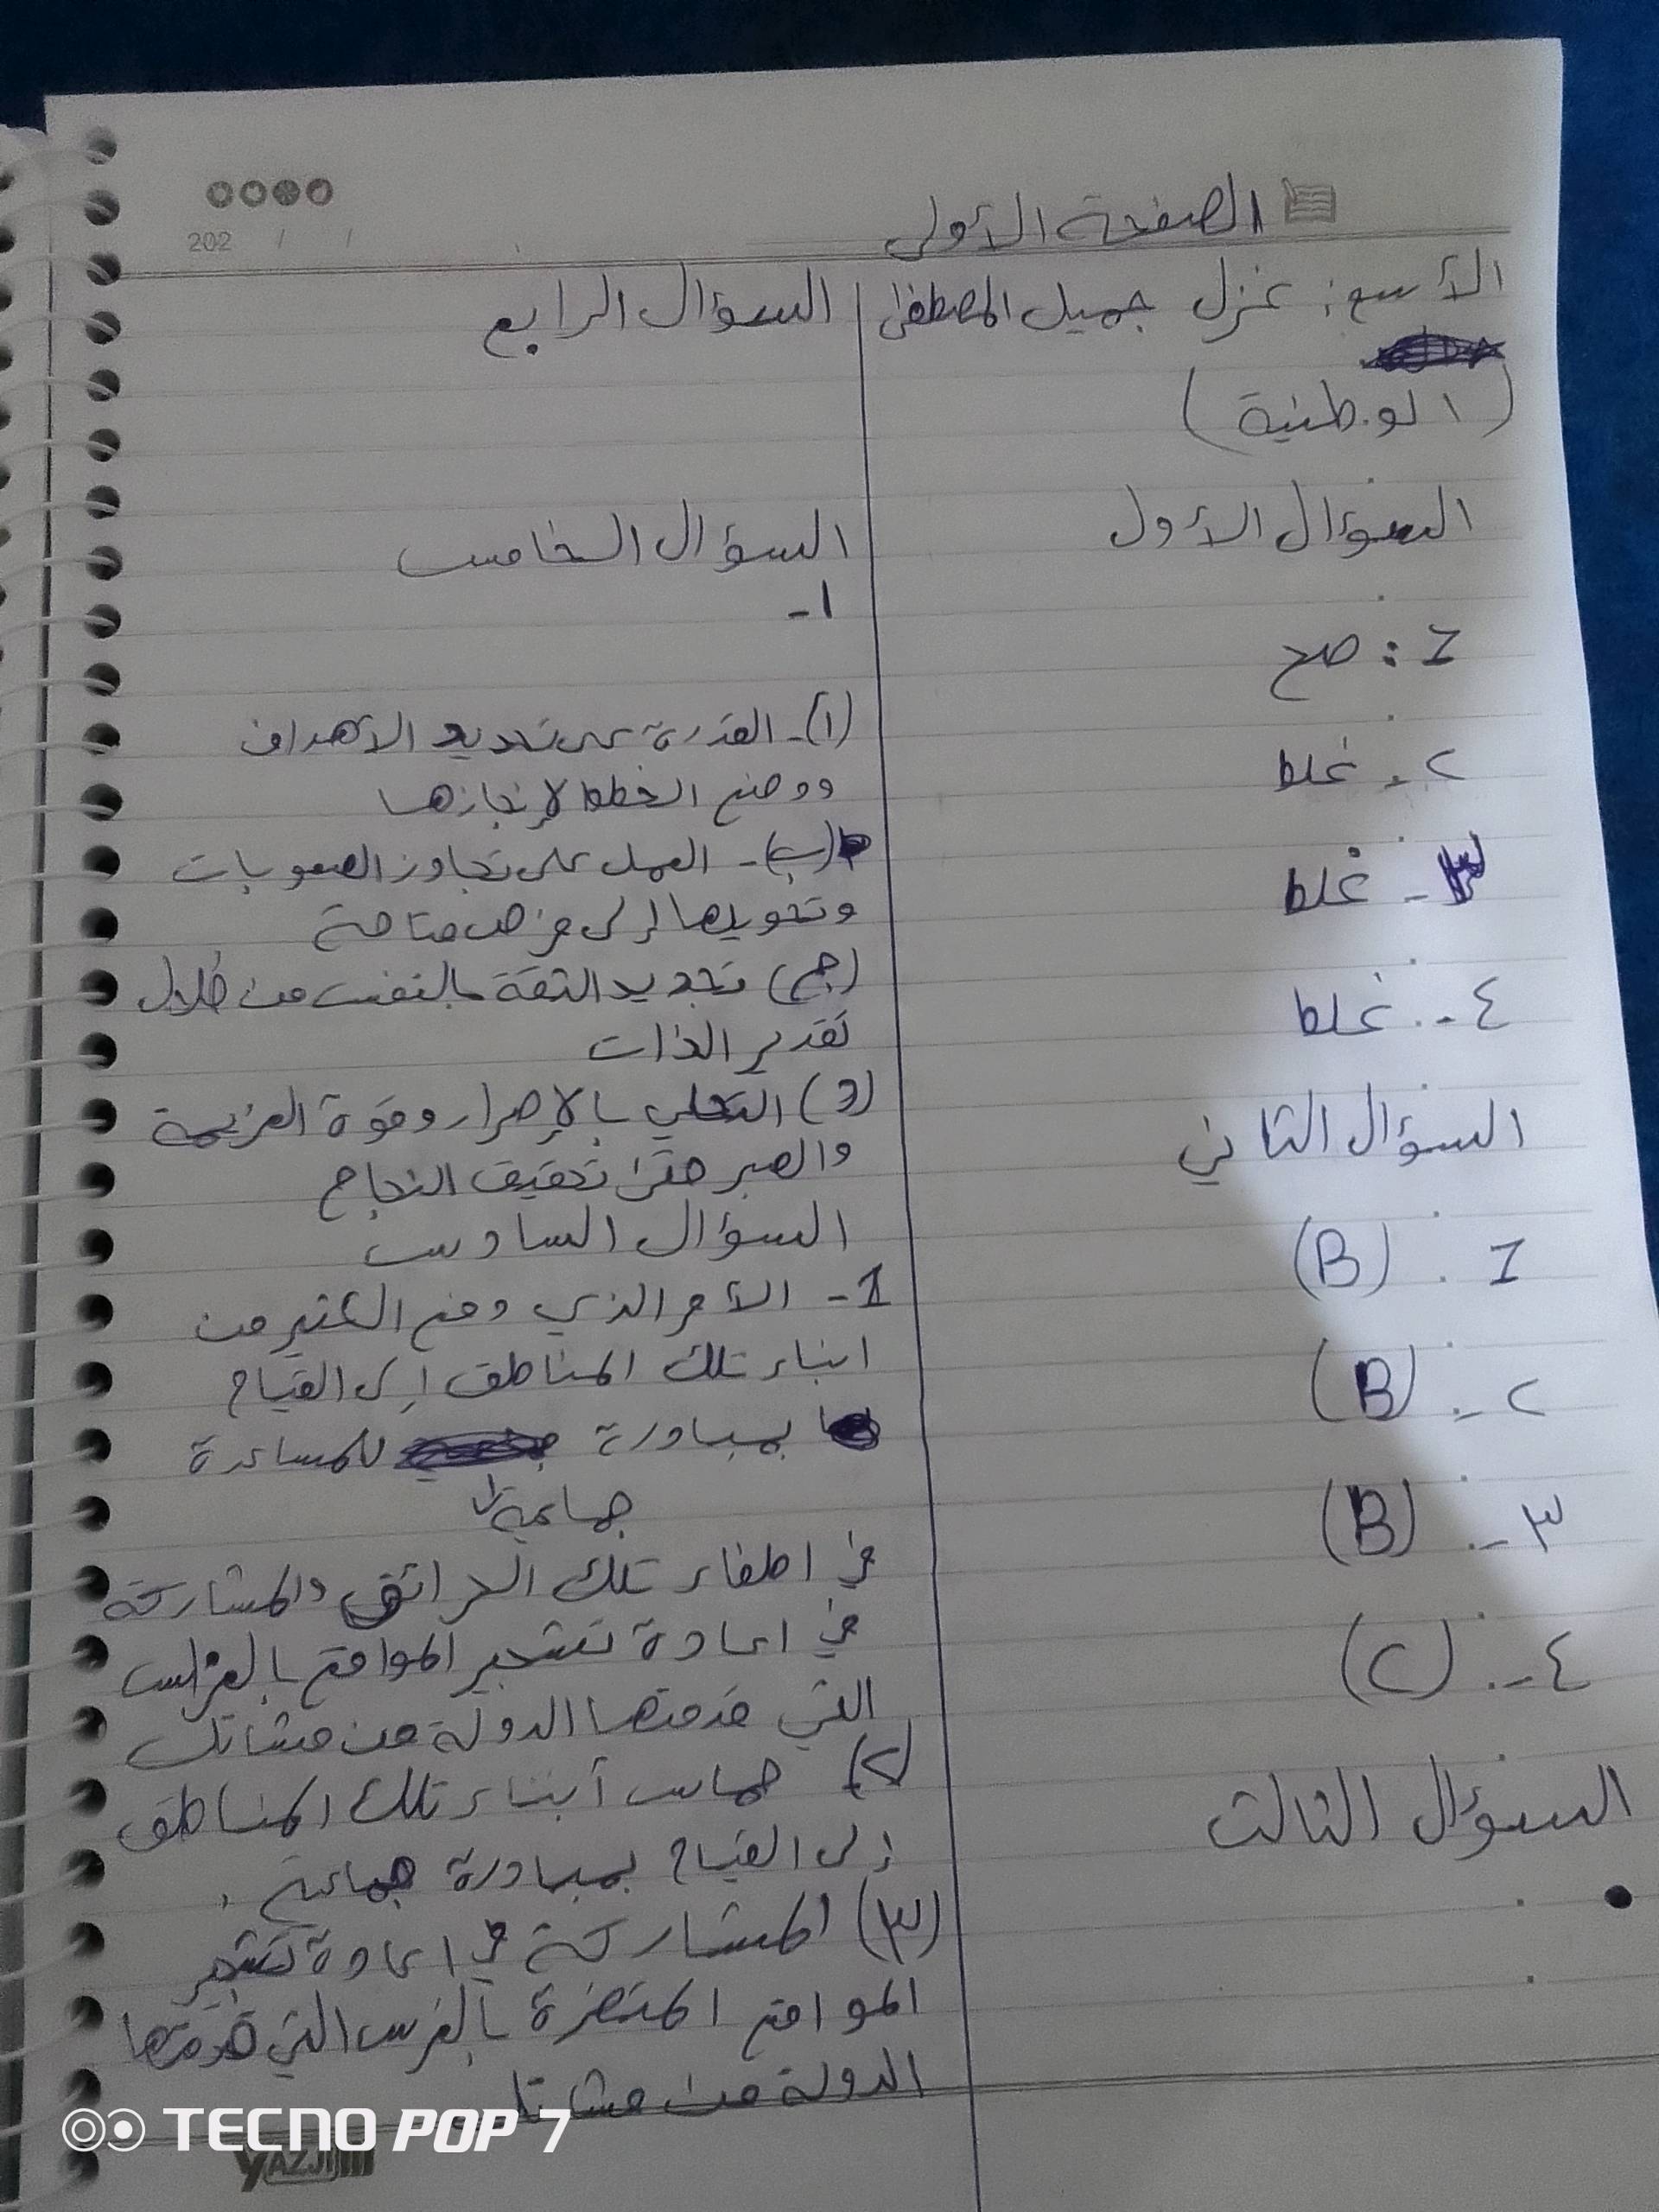 202 / /
الصفحة الأولى
الأسم: غزل جميل المصطفى
(الوطنية)
السؤال الأول
1: صح
٢- غلط
٣- غلط
٤- غلط
السؤال الثاني
1. (B)
٢- (B)
٣- (B)
٤- (C)
السؤال الثالث
السؤال الرابع
السؤال الخامس
١-
(١)- القدرة على تحديد الأهداف
ووضع الخطط لإنجازها
(ب)- العمل على تجاوز الصعوبات
وتحويلها إلى فرص متاحة
(ج) تجديد الثقة بالنفس من خلال
تقدير الذات
(د) التحلي بالإصرار وقوة العزيمة
والصبر حتى تحقيق النجاح
السؤال السادس
1- الأمر الذي دفع الكثير من
ابناء تلك المناطق إلى القيام
بمبادرة للمساعدة
جماعية
في اطفاء تلك الحرائق والمشاركة
في اعادة تشجير المواقع بالغراس
التي قدمتها الدولة من مشاتل
(٢) حماس أبناء تلك المناطق
إلى القيام بمبادرة جماعية .
(٣) المشاركة في اعادة تشجير
المواقع المتضررة بالغرس التي قدمتها
الدولة من مشاتل
TECNO POP 7
YAZJI